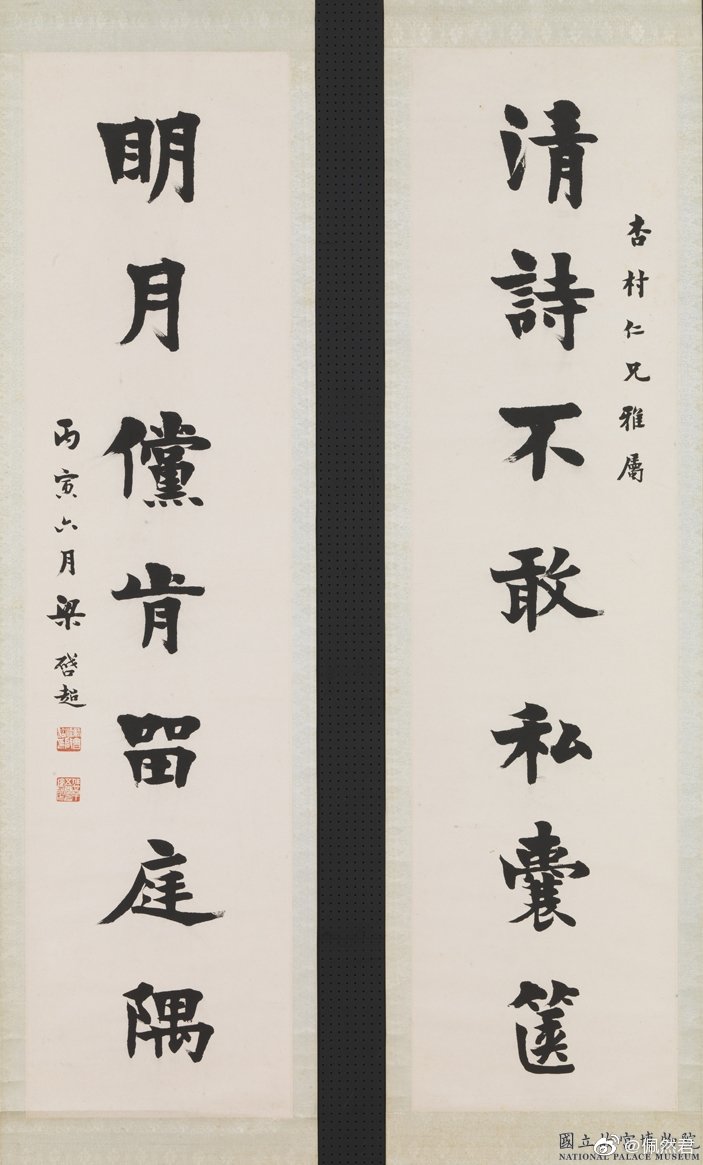 杏村仁兄雅屬
清詩不敢私囊篋
明月儻肯留庭隅
丙寅六月梁啓超
國立故宮博物院
NATIONAL PALACE MUSEUM
@佩然君